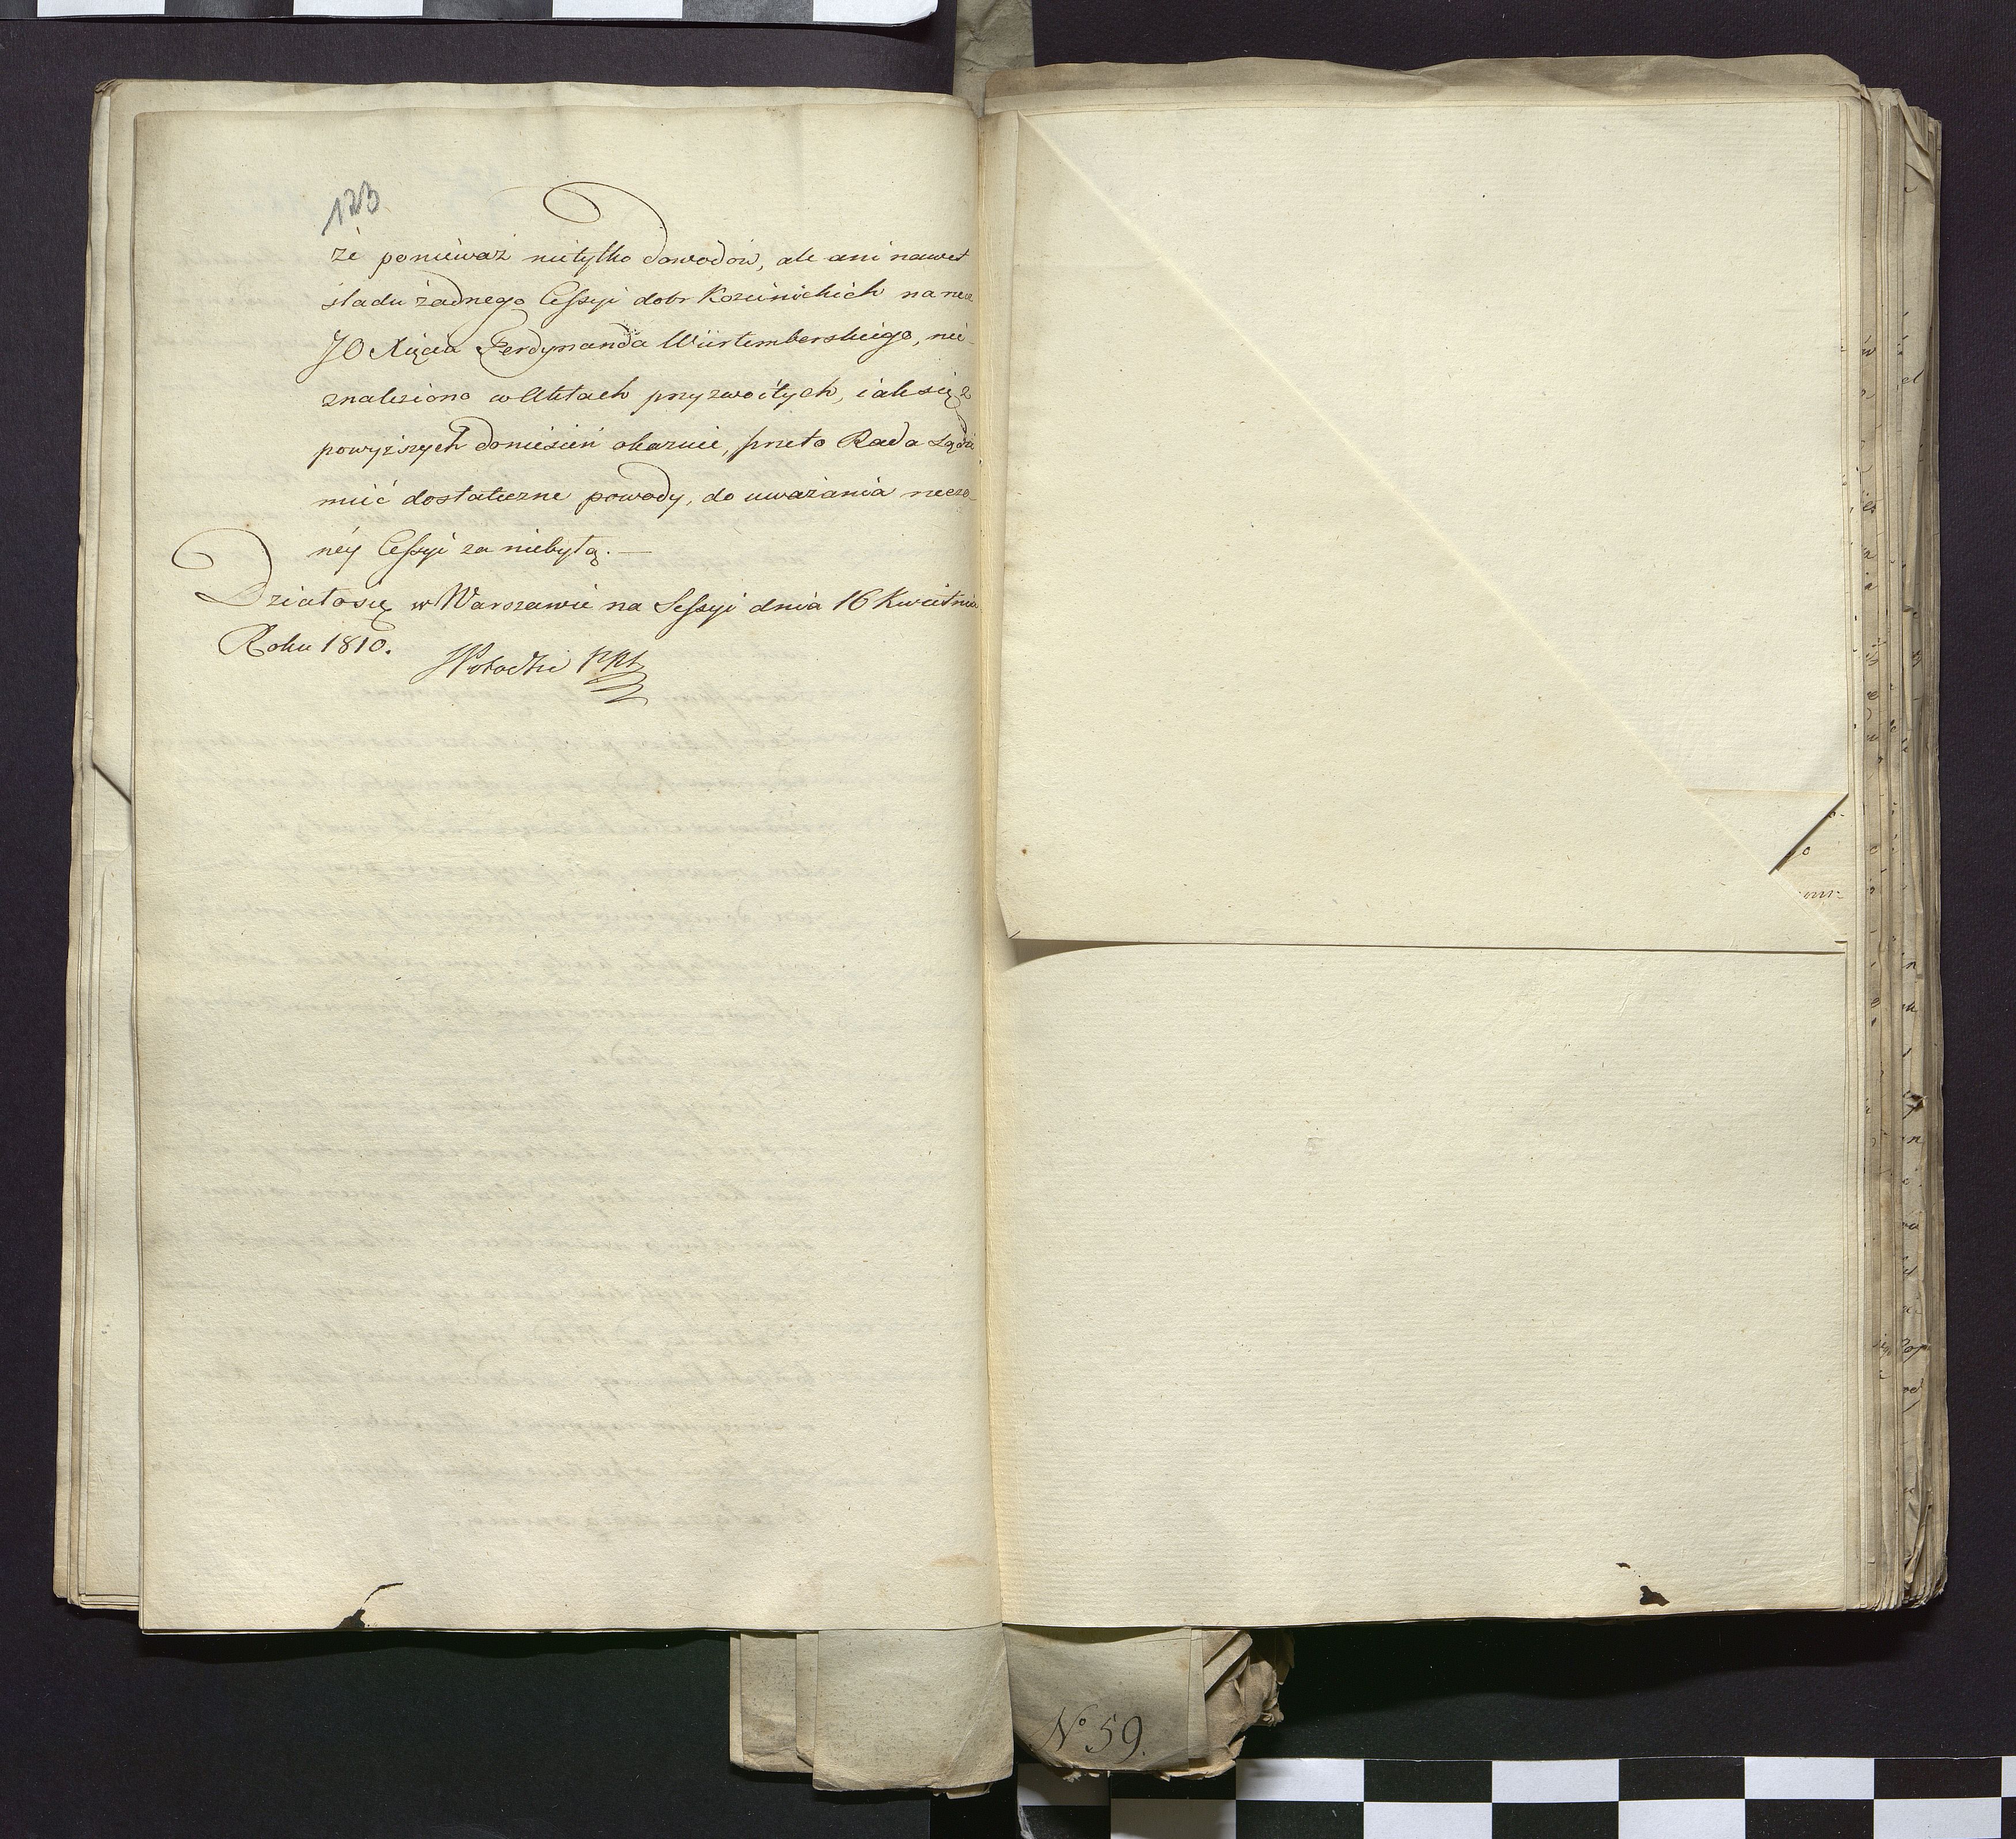 123
że ponieważ nietylko dowodów, ale ani nawet
śladu żadnego Cessyi dobr Kozienickich na rzecz
JO Xięcia Ferdynanda Würtemberskiego, nie-
znaleziono w Aktach przyzwoitych, iak się z
powyższych doniesień okazuie, przeto Rada sądzi
mieć dostateczne powody, do uważania rzeczo-
néy Cessyi za niebyłą. —
Działo się w Warszawie na Sessyi dnia 16 Kwietnia
Roku 1810.
Potocki
No 59.